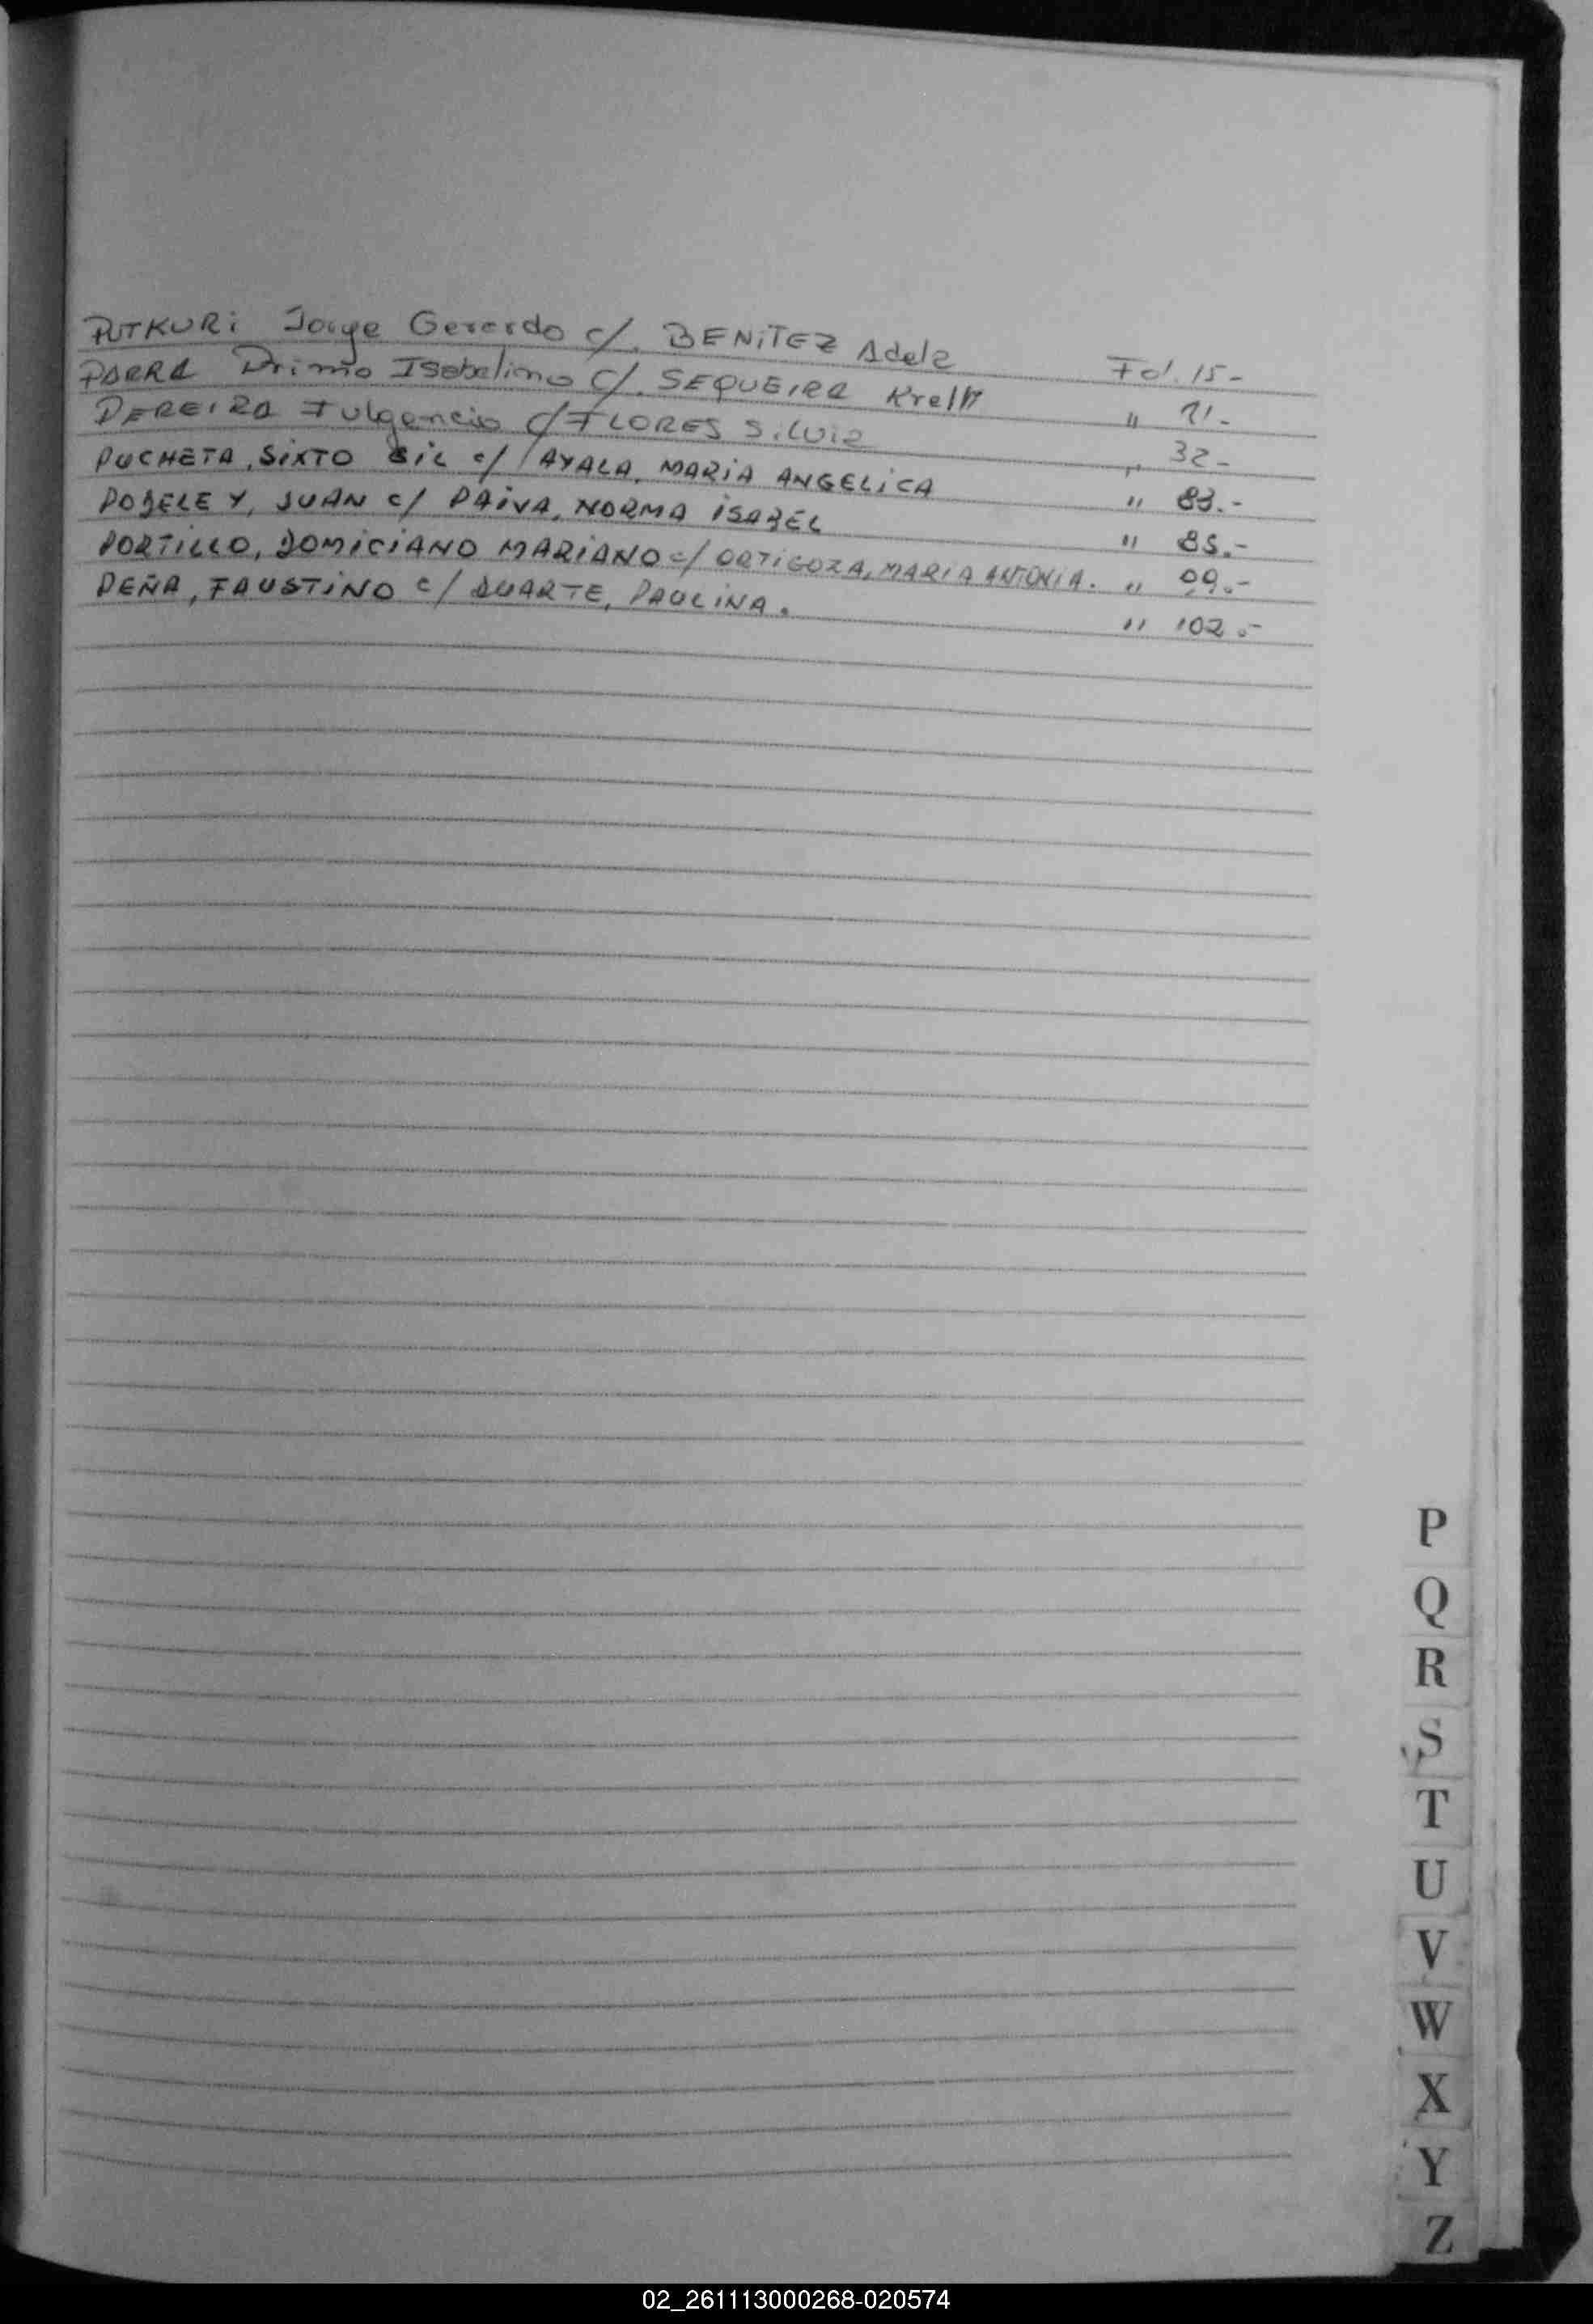 PUTKURi Jorge Gerardo c/. BENiTEZ Adela Fol. 15-
PARRA Primo Isabelino c/. SEQUEIRA " 21-
PEREIRA Fulgencio c/ FLORES Silvia " 32-
PUCHETA, SiXTO GiL c/ AYALA, MARiA ANGELiCA " 83.-
JUAN c/ PAiVA, NORMA iSABEL " 85.-
PORTiLLO, DOMiCiANO MARiANO c/ ORTiGOZA, MARIA ANTONIA. " 99.-
PEÑA, FAUSTiNO c/ DUARTE, PAULiNA. " 102.-
P
Q
R
S
T
U
V
W
X
Y
Z
02_261113000268-020574